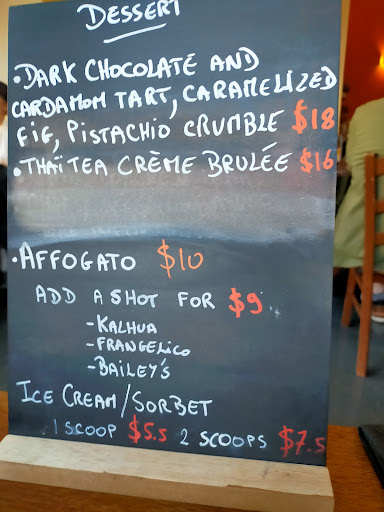 DESSERT
• DARK CHOCOLATE AND
CARDAMOM TART, CARAMELIZED
FIG, PISTACHIO CRUMBLE $18
• THAÏ TEA CRÈME BRULÉE $16
• AFFOGATO $10
ADD A SHOT FOR $9.
- KALHUA
- FRANGELICO
- BAILEY'S
ICE CREAM/SORBET
1 SCOOP $5.5 2 SCOOPS $7.5